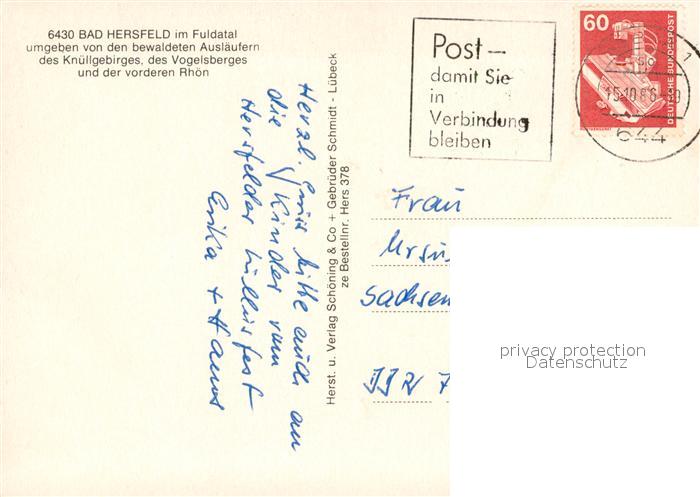 6430 BAD HERSFELD im Fuldatal
umgeben von den bewaldeten Ausläufern
des Knüllgebirges, des Vogelsberges
und der vorderen Rhön
Herzl. Gruß bitte auch an
die Kinder vom
Hersfelder Lullusfest
Erika + Hanns
Herst. u. Verlag Schöning & Co + Gebrüder Schmidt - Lübeck
ze Bestellnr. Hers 378
Post -
damit Sie
in
Verbindung
bleiben
60
DEUTSCHE BUNDESPOST
15.10.86
644
Frau
Ursu
Sachsen
privacy protection
Postkarten